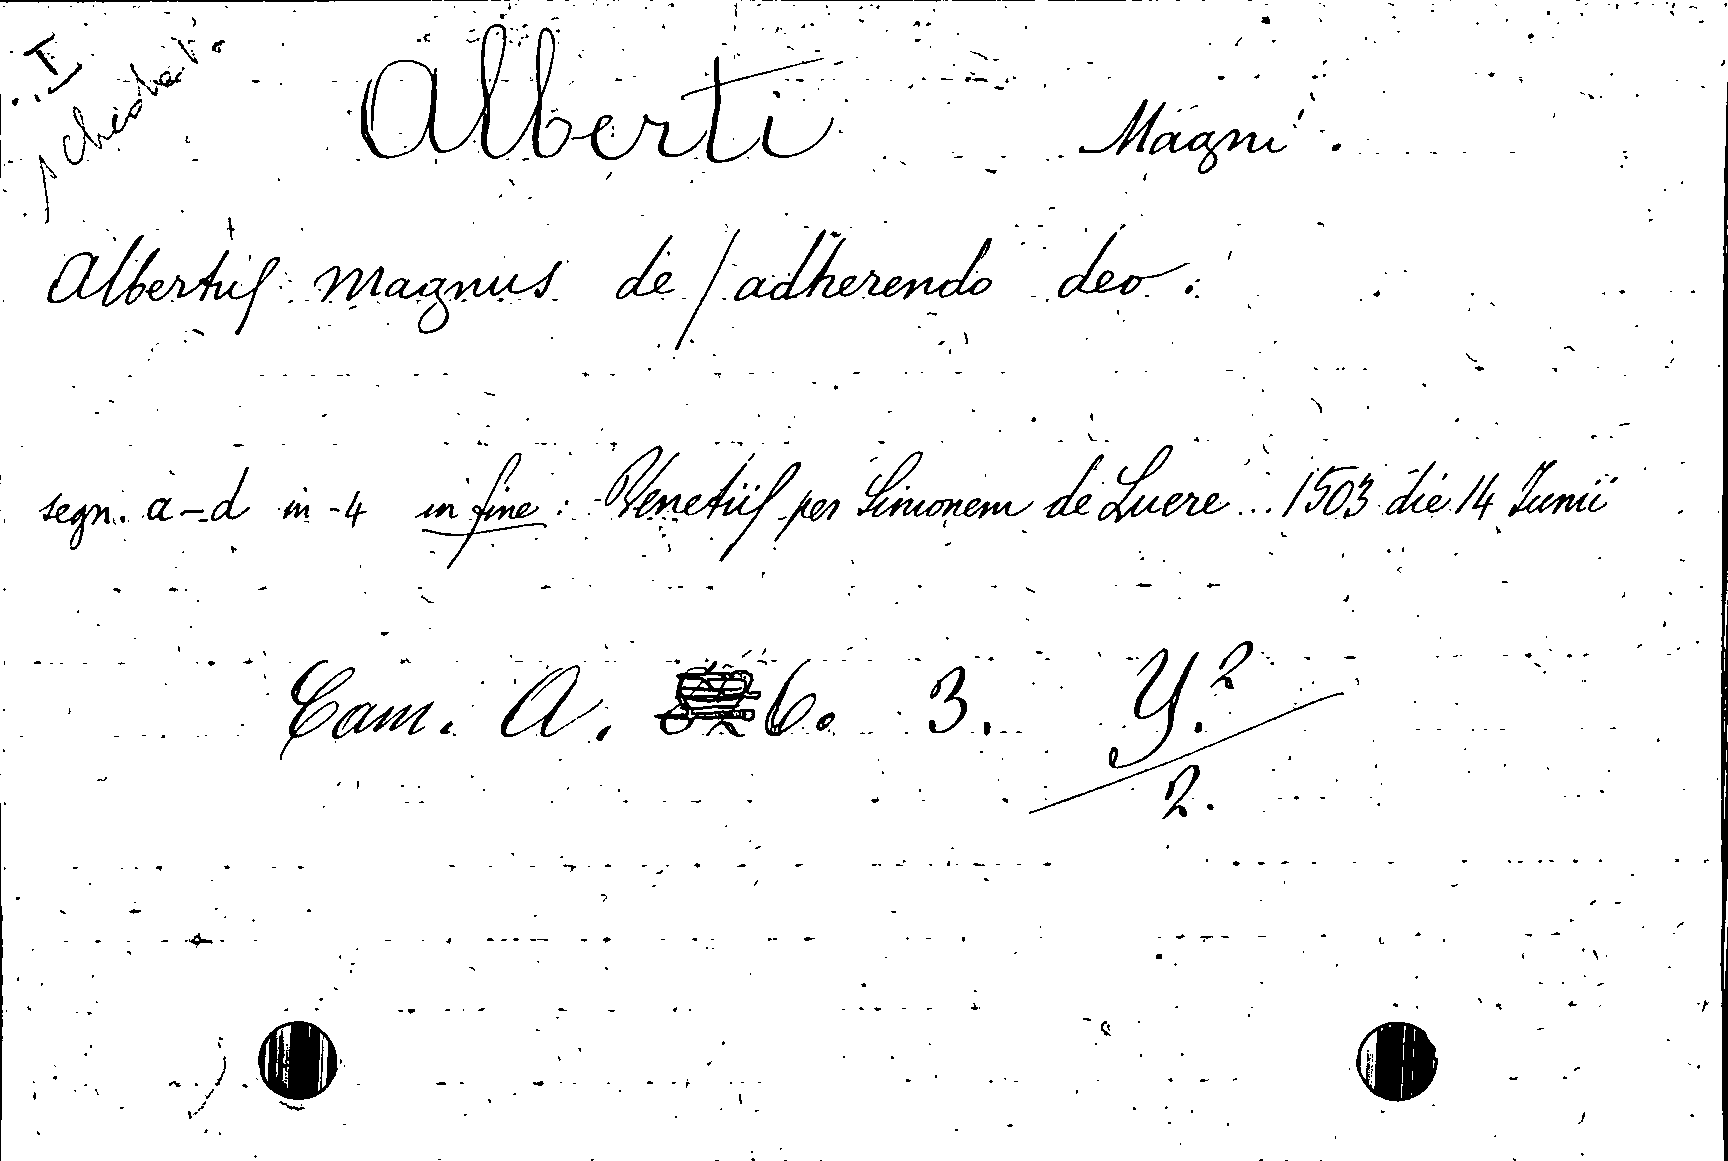 I
schedat.
Alberti Magni.
Albertuſ Magnus de / adherendo deo.
segn. a-d in-4 in fine: Venetiiſ per Simonem de Luere... 1503 die 14 Iunii
Cam. A. 6. 3. Y.2
2.